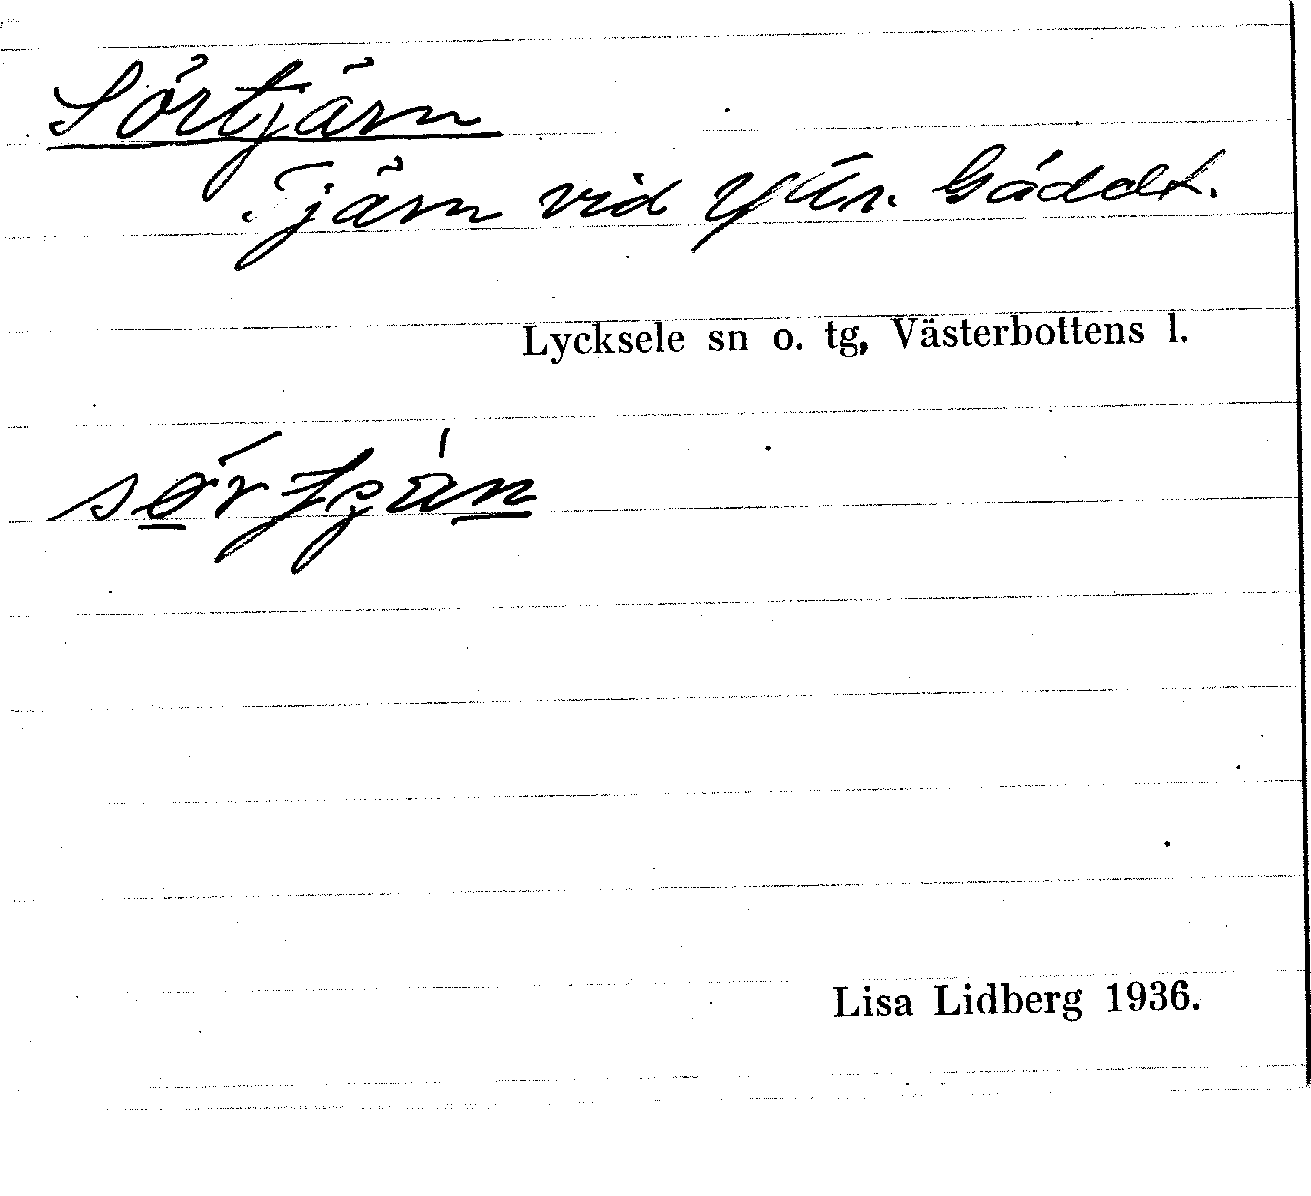 Sörtjärn
Tjärn vid Yttr. Gäddt.
Lycksele sn o. tg, Västerbottens l.
Lisa Lidberg 1936.